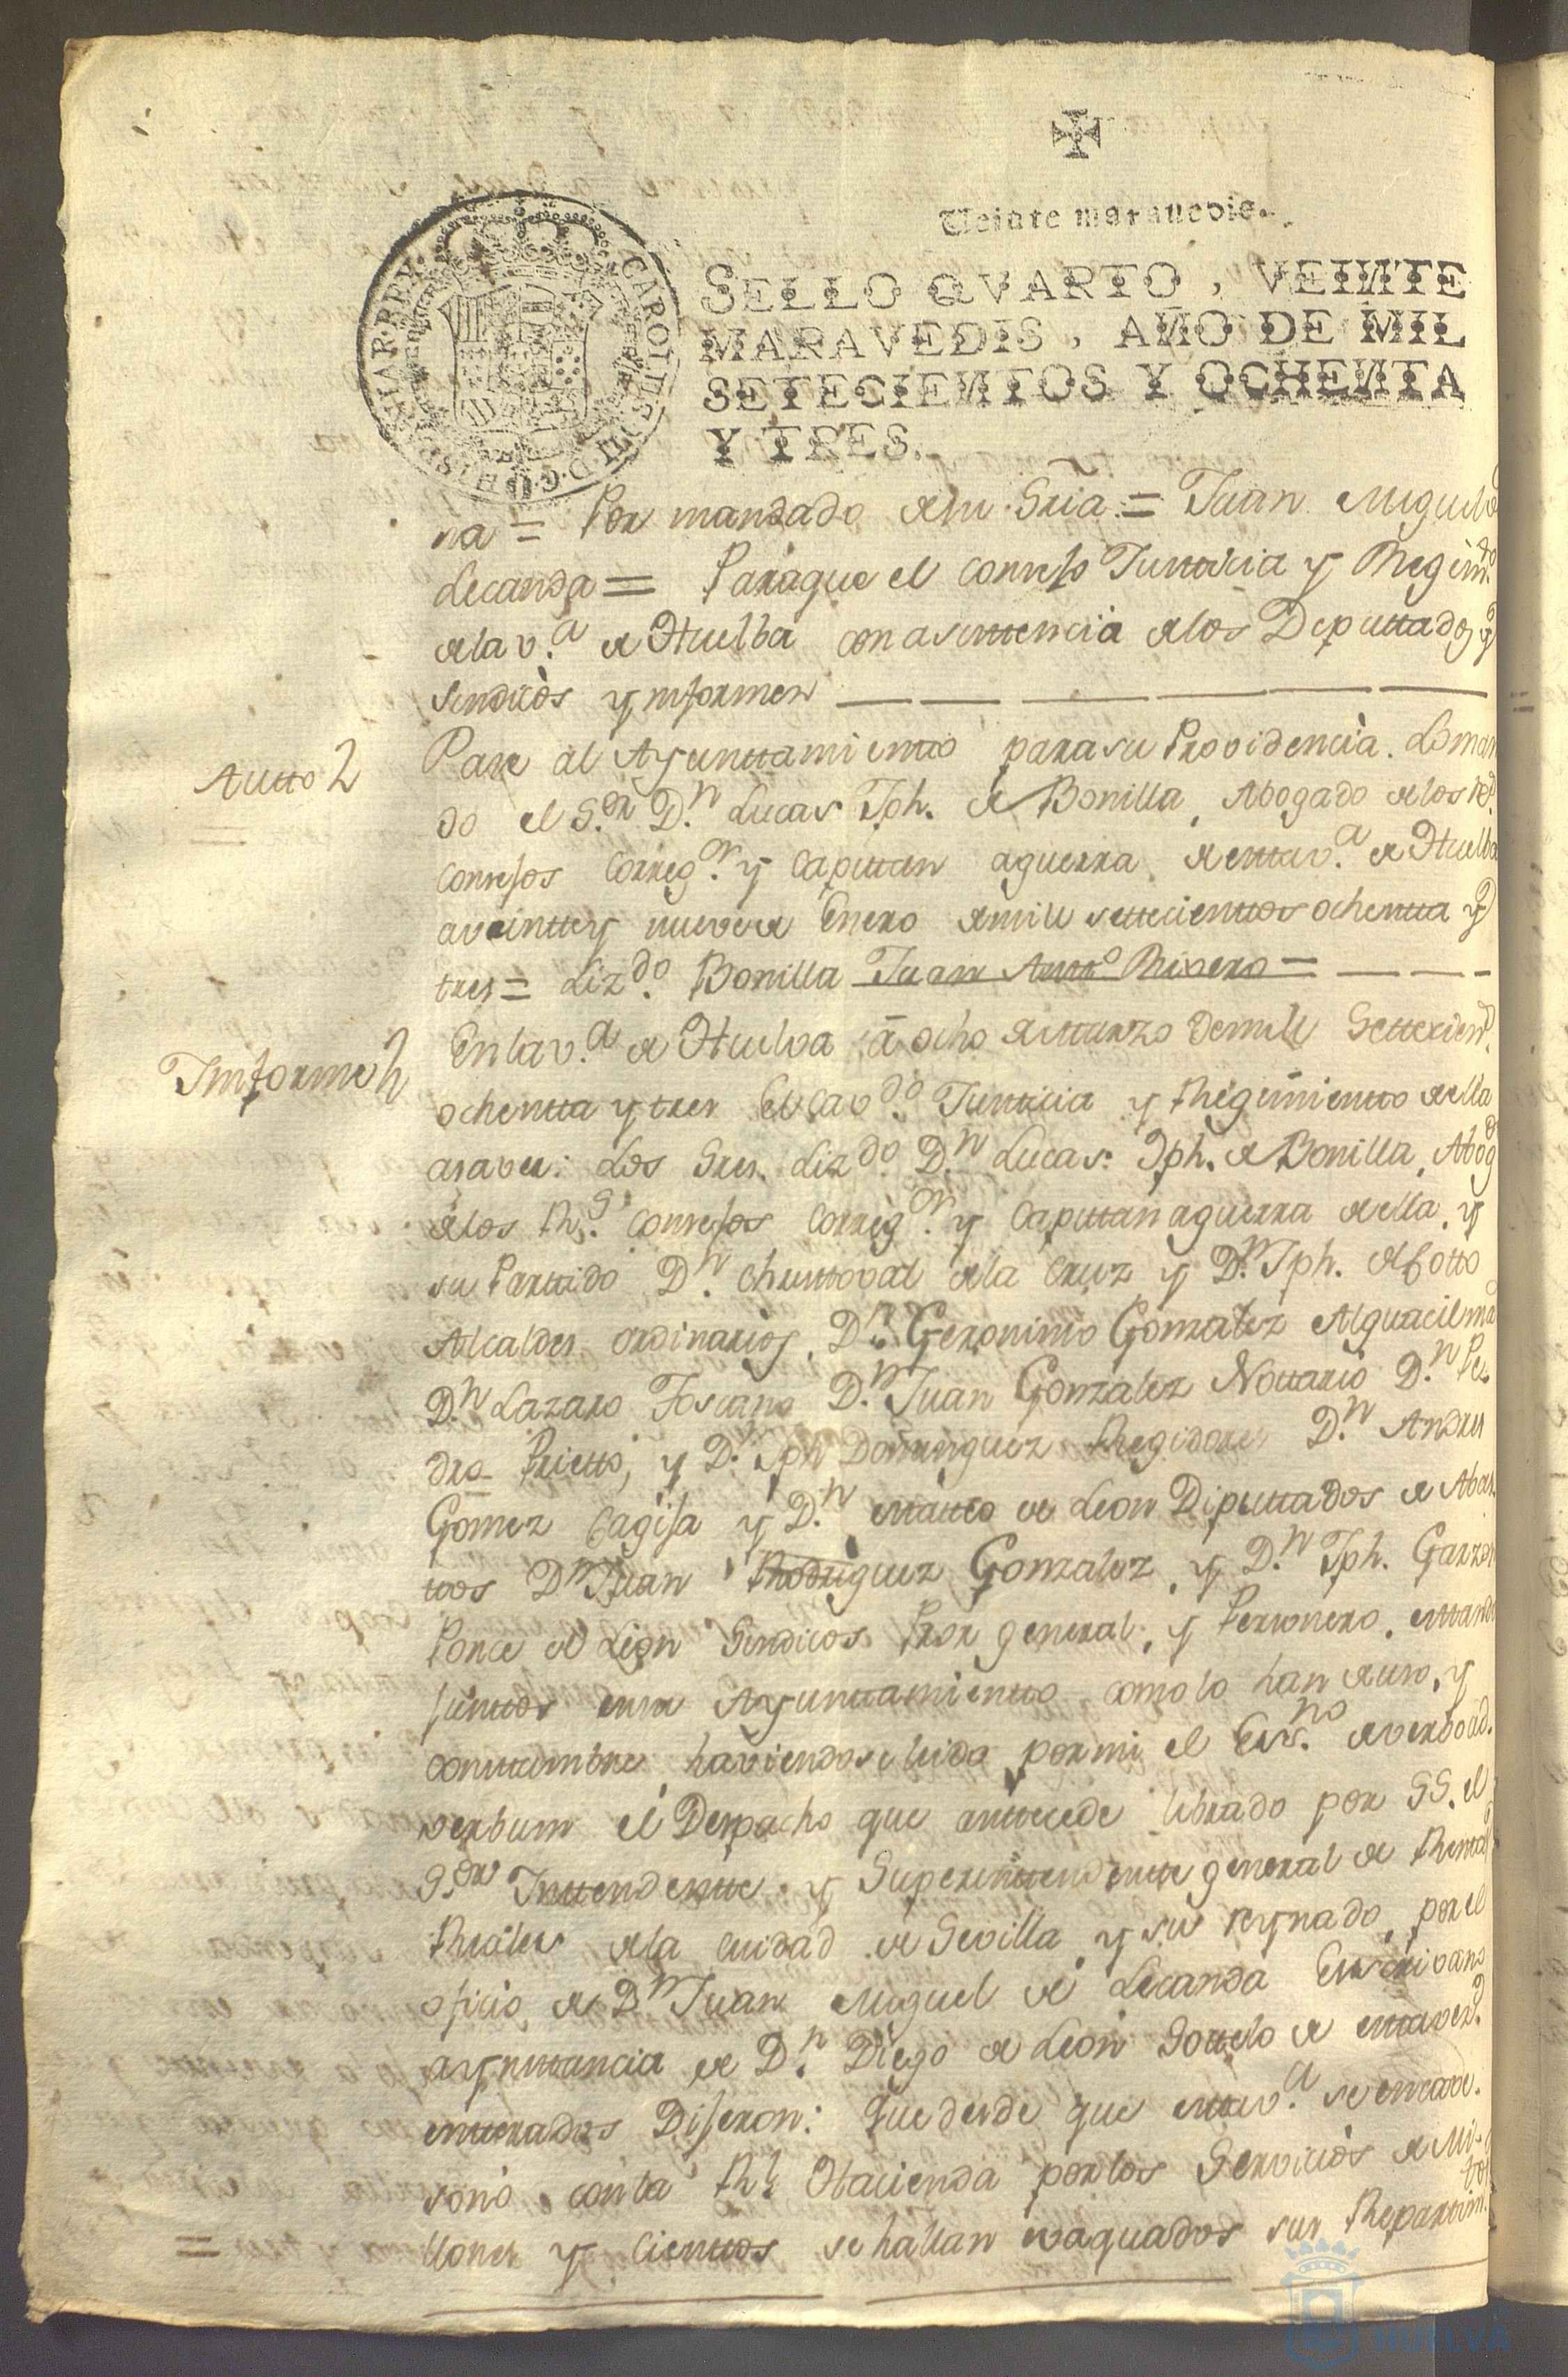 Veinte maravedis.
SELLO QVARTO, VEINTE
MARAVEDIS, AÑO DE MIL
SETECIENTOS Y OCHENTA
Y TRES.
CAROLUS III D.G. HISPANIAR. REX
na = Por mandado de su Sria = Juan Miguel de
Lecanda = Paraque el Consejo Justicia y Regim.to
de la v.a de Huelba con asistencia de los Deputados y
Sindicos ynformen
Autto
Pase al Ayunttamiento para su Providencia. Lo man
do el S.or D.n Lucas Jph. de Bonilla, Abogado de los R.s
Consejos Correg.or y Capittan aguerra de esta v.a de Huelba
a veintte y nueve de Enero de mill settecienttos ochentta y
tres = Liz.do Bonilla Juan Antt.o Rivero =
Imforme
En la v.a de Huelva â ocho de Marzo de mill Settecien.s
ochentta y tres El Cav.do Justicia y Regimientto de ella
asaver: Los Sres. Liz.do D.n Lucas Jph. de Bonilla, Abog.do
de los R.s Consejos Correg.or y Capittan aguerra de ella, y
su Parttido D.n Christtoval de la Cruz y D.n Jph. de Cotto
Alcaldes ordinarios, D.n Geronimo Gonzalez Alguacil ma
D.n Lazaro Toscano D.n Juan Gonzalez Nottario D.n Pe
dro Prietto, y D.n Jph Dominguez Regidores D.n Andres
Gomez Cagisa y D.n Matteo de Leon Diputtados de Abas
ttos D.n Juan Rodriguez Gonzalez, y D.n Jph. Garzon
Ponce de Leon Sindicos Pror general, y Personero, estando
junttos en su Ayunttamientto como lo han de uso, y
costtumbre haviendose leido por mi el Ess.no de verbo ad
verbum el Despacho que anttecede librado por SS. el
S.or Inttendentte y Superinttendentte general de Renttas
Reales de la ciudad de Sevilla y su reynado, por el
oficio de D.n Juan Miguel de Lecanda Escrivano
aynstancia de D.n Diego de Leon Sottelo de esta vez.d
entterados Dijeron: que desde que estta v.a se encave.
sonò con la R.l Hacienda por los Servicios de Mi-
llones y Cienttos se hallan evaquados sus Repartim.tos
HUELVA